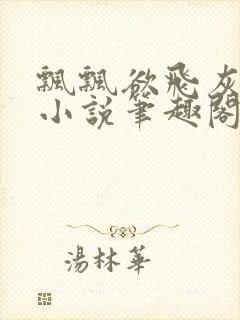 飄飄欲飛灰
小說筆趣閣
湯林華